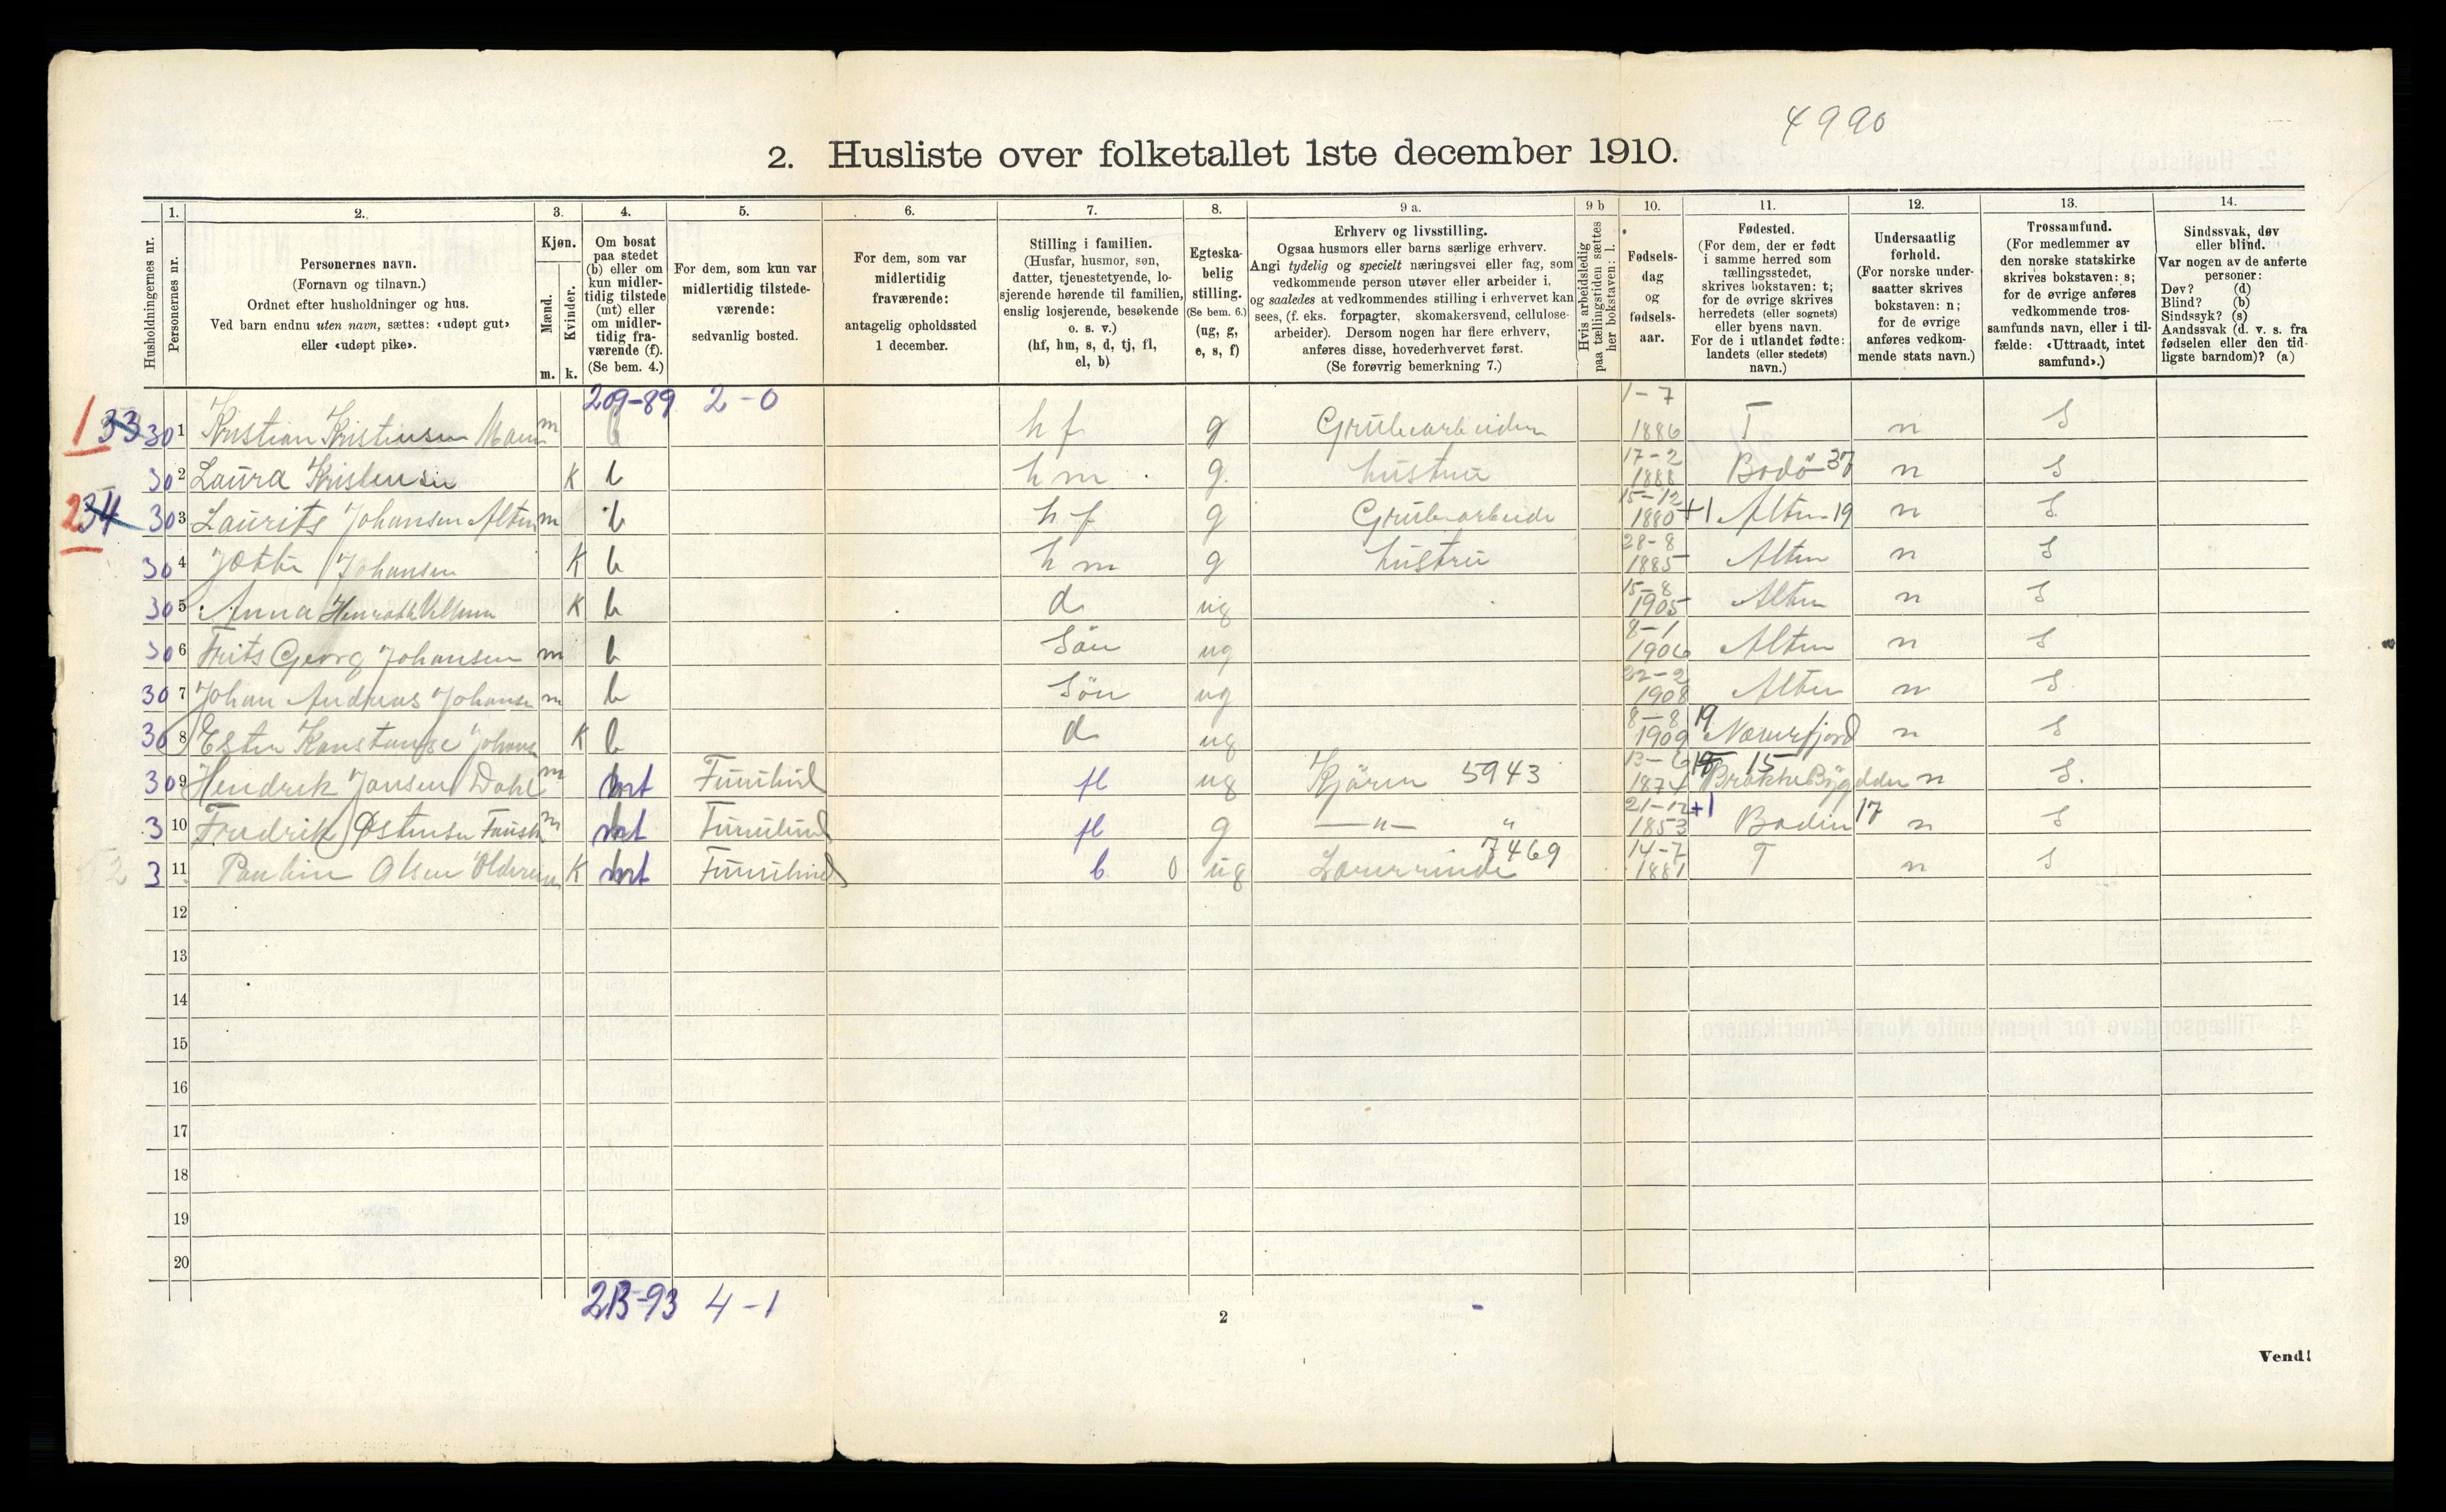 4990
2. Husliste over folketallet 1ste december 1910.
1. 2. 3. 4. 5. 6. 7. 8. 9 a. 9 b 10. 11. 12. 13. 14.
Husholdningernes nr.
Personernes nr.
Personernes navn.
(Fornavn og tilnavn.)
Ordnet efter husholdninger og hus.
Ved barn endnu uten navn, sættes: «udøpt gut»
eller «udøpt pike».
Kjøn.
Mænd.
Kvinder.
m. k.
Om bosat
paa stedet
(b) eller om
kun midler-
tidig tilstede
(mt) eller
om midler-
tidig fra-
værende (f).
(Se bem. 4.)
For dem, som kun var
midlertidig tilstede-
værende:
sedvanlig bosted.
For dem, som var
midlertidig
fraværende:
antagelig opholdssted
1 december.
Stilling i familien.
(Husfar, husmor, søn,
datter, tjenestetyende, lo-
sjerende hørende til familien,
enslig losjerende, besøkende
o. s. v.)
(hf, hm, s, d, tj, fl,
el, b)
Egteska-
belig
stilling.
(Se bem. 6.)
(ug, g,
e, s, f)
Erhverv og livsstilling.
Ogsaa husmors eller barns særlige erhverv.
Angi tydelig og specielt næringsvei eller fag, som
vedkommende person utøver eller arbeider i,
og saaledes at vedkommendes stilling i erhvervet kan
sees, (f. eks. forpagter, skomakersvend, cellulose-
arbeider). Dersom nogen har flere erhverv,
anføres disse, hovederhvervet først.
(Se forøvrig bemerkning 7.)
Hvis arbeidsledig
paa tællingstiden sættes
her bokstaven: l.
Fødsels-
dag
og
fødsels-
aar.
Fødested.
(For dem, der er født
i samme herred som
tællingsstedet,
skrives bokstaven: t;
for de øvrige skrives
herredets (eller sognets)
eller byens navn.
For de i utlandet fødte:
landets (eller stedets)
navn.)
Undersaatlig
forhold.
(For norske under-
saatter skrives
bokstaven: n;
for de øvrige
anføres vedkom-
mende stats navn.)
Trossamfund.
(For medlemmer av
den norske statskirke
skrives bokstaven: s;
for de øvrige anføres
vedkommende tros-
samfunds navn, eller i til-
fælde: «Uttraadt, intet
samfund».)
Sindssvak, døv
eller blind.
Var nogen av de anførte
personer:
Døv? (d)
Blind? (b)
Sindssyk? (s)
Aandssvak (d. v. s. fra
fødselen eller den tid-
ligste barndom)? (a)
209-89 2-0
1 33 30 1 Kristian Kristiansen m b hf g Grubearbeider 1-7 1886 T n S
30 2 Laura Kristensen K b hm g hustru 17-2 1888 Bodö 37 n S
2 34 30 3 Laurits Johansen Alten m b hf g Grubearbeide 15-12 1880 +1 Alten 19 n S
30 4 Johansen K b hm g hustru 28-8 1885 Alten n S
30 5 Anna K b d ug 15-8 1905 Alten n S
30 6 Frits Georg Johansen m b Sön ug 8-1 1906 Alten n S
30 7 Johan Andreas Johansen m b Sön ug 22-2 1908 Alten n S
30 8 Ester Konstanse Johans K b d ug 8-8 1909 19 n S
30 9 Hendrik Jansen Dahl m mt Furulund fl ug Kjörer 5943 13-6 1874 15 n S.
3 10 Fredrik Østensen m mt Furulund fl g —"— " 21-12 1853 +1 Bodin 17 n S
3 11 Paulin Olsen K mt Furulund b 0 ug Lærerinde 7469 14-7 1881 T n S
12
13
14
15
16
17
18
19
20
213-93 4-1
2
Vend!